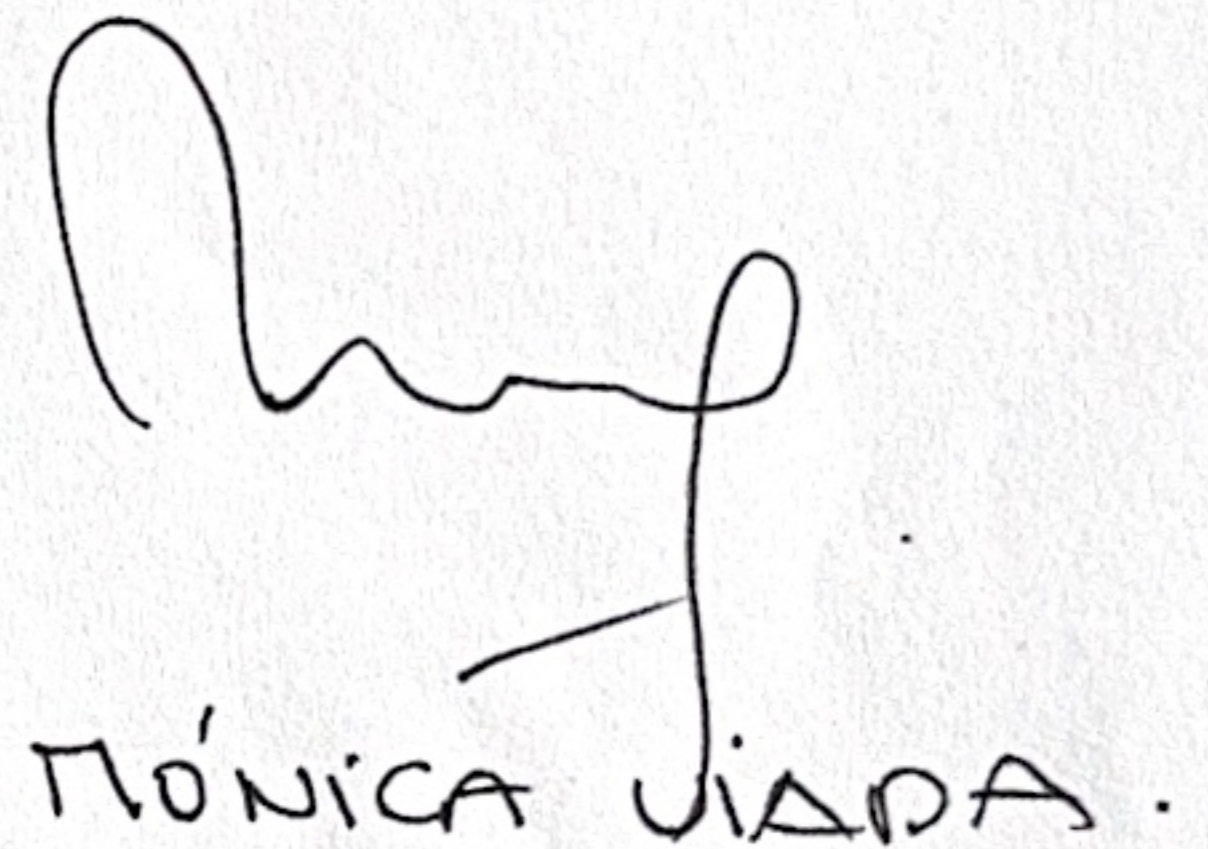 MÓNICA VIADA.